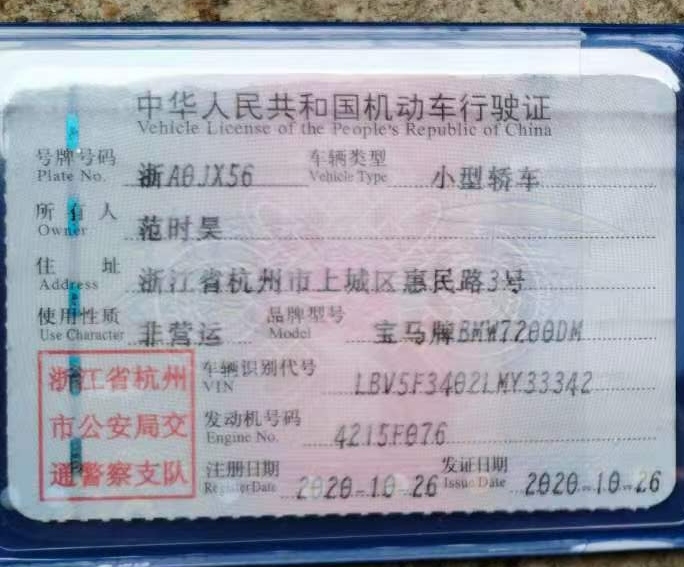 中华人民共和国机动车行驶证
Vehicle License of the People's Republic of China
号牌号码 浙A0JX56 车辆类型 小型轿车
Plate No. Vehicle Type
所有人 范时昊
Owner
住址 浙江省杭州市上城区惠民路3号
Address
使用性质 非营运 品牌型号 宝马牌BMW7200DM
Use Character Model
浙江省杭州
市公安局交
通警察支队
车辆识别代号 LBV5F3402LMY33342
VIN
发动机号码 4215F076
Engine No.
注册日期 2020-10-26 发证日期 2020-10-26
Register Date Issue Date